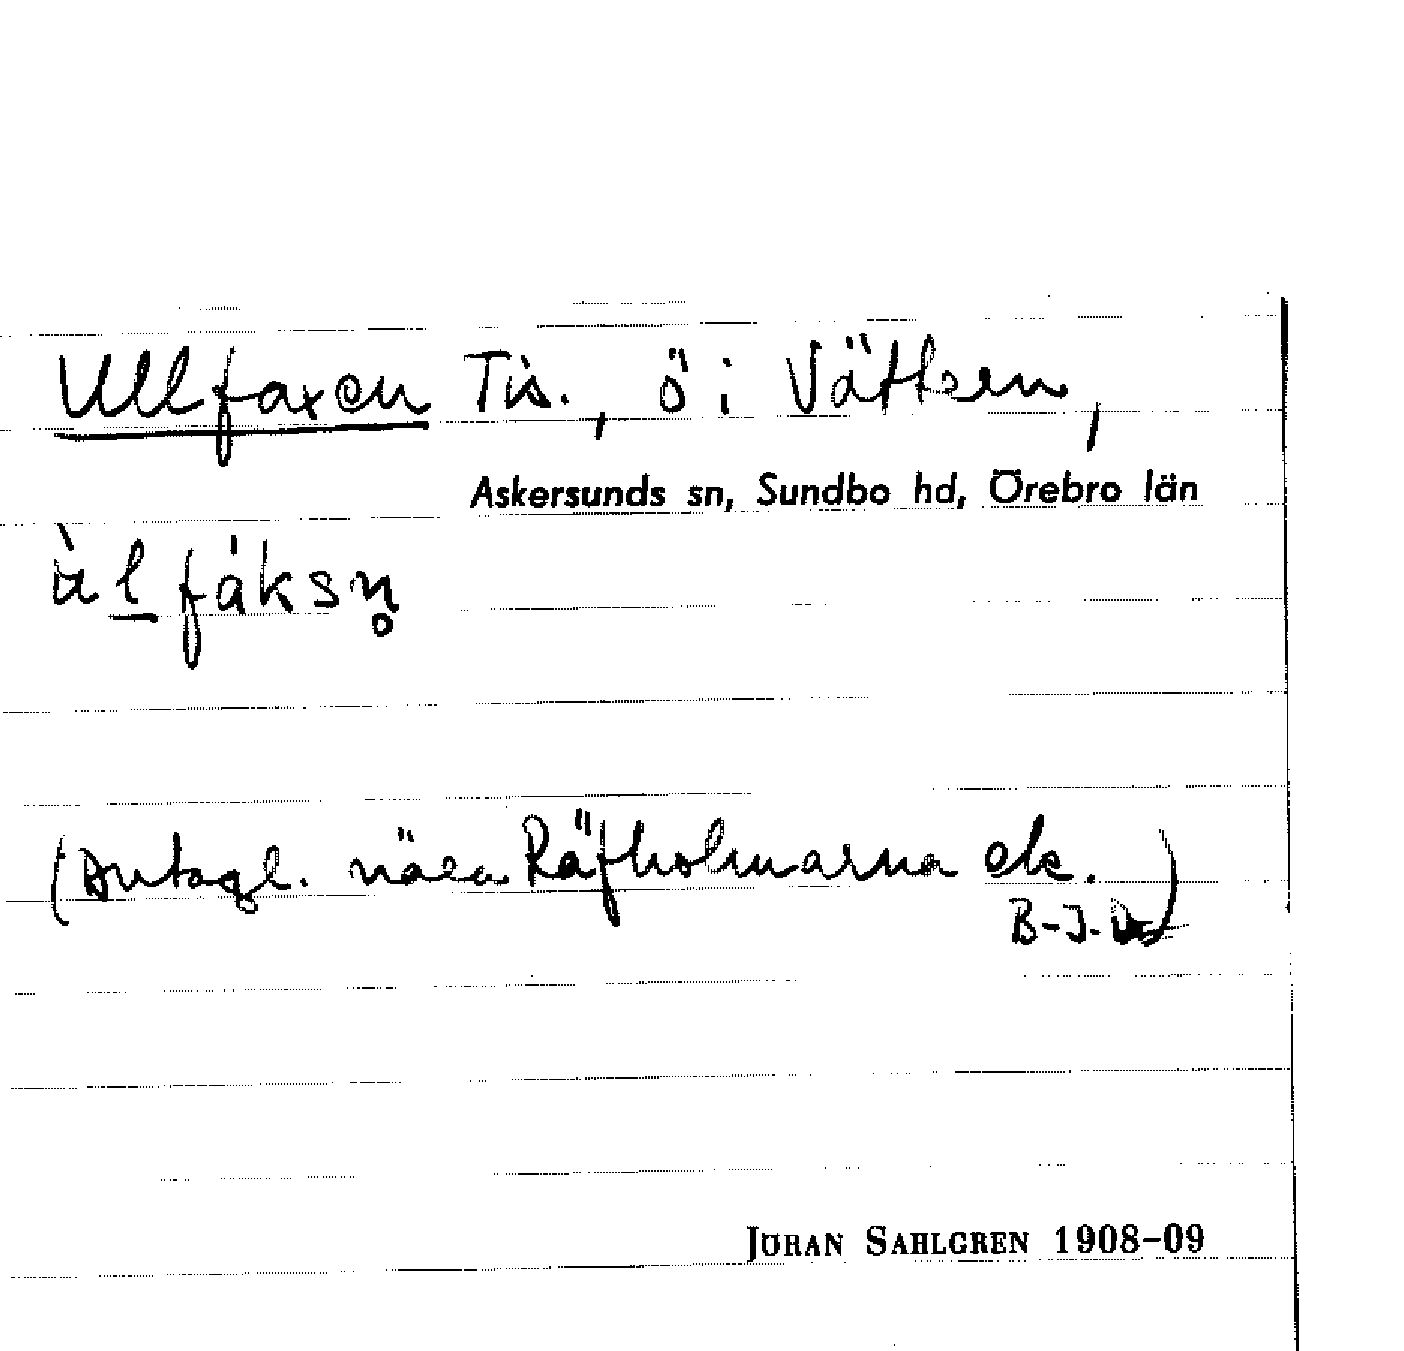 Ullfaxen Tis., ö i Vättern,
Askersunds sn, Sundbo hd, Örebro län
ùl fáksn̥
(Antagl. nära Räfholmarna etc.)
B-J.
JÖRAN SAHLGREN 1908-09